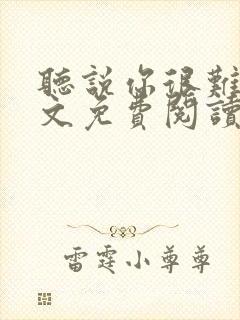 聽說你很難
文免費閱讀
雷霆小尊尊